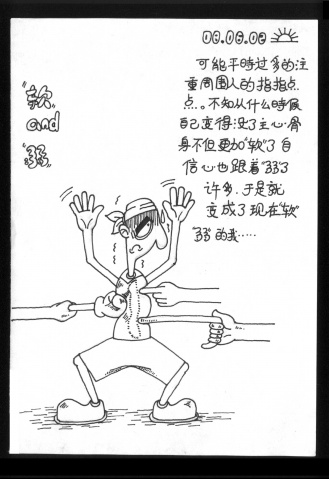 08.08.08
"软"
and
"弱"
可能平时过多的注
重周围人的指指点
点。不知从什么时候
自己变得没了主心骨
身不但更加"软"了自
信心也跟着"弱"了
许多.于是就
变成了现在"软"
"弱"的我……